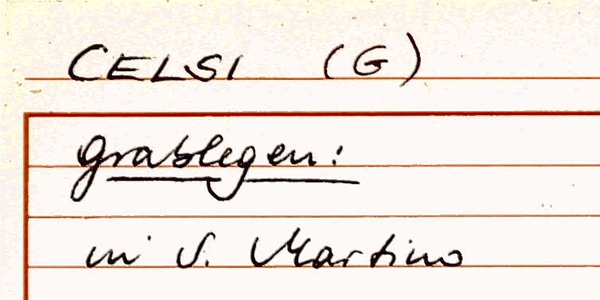 CELSI (G)
Grablegen:
in S. Martino